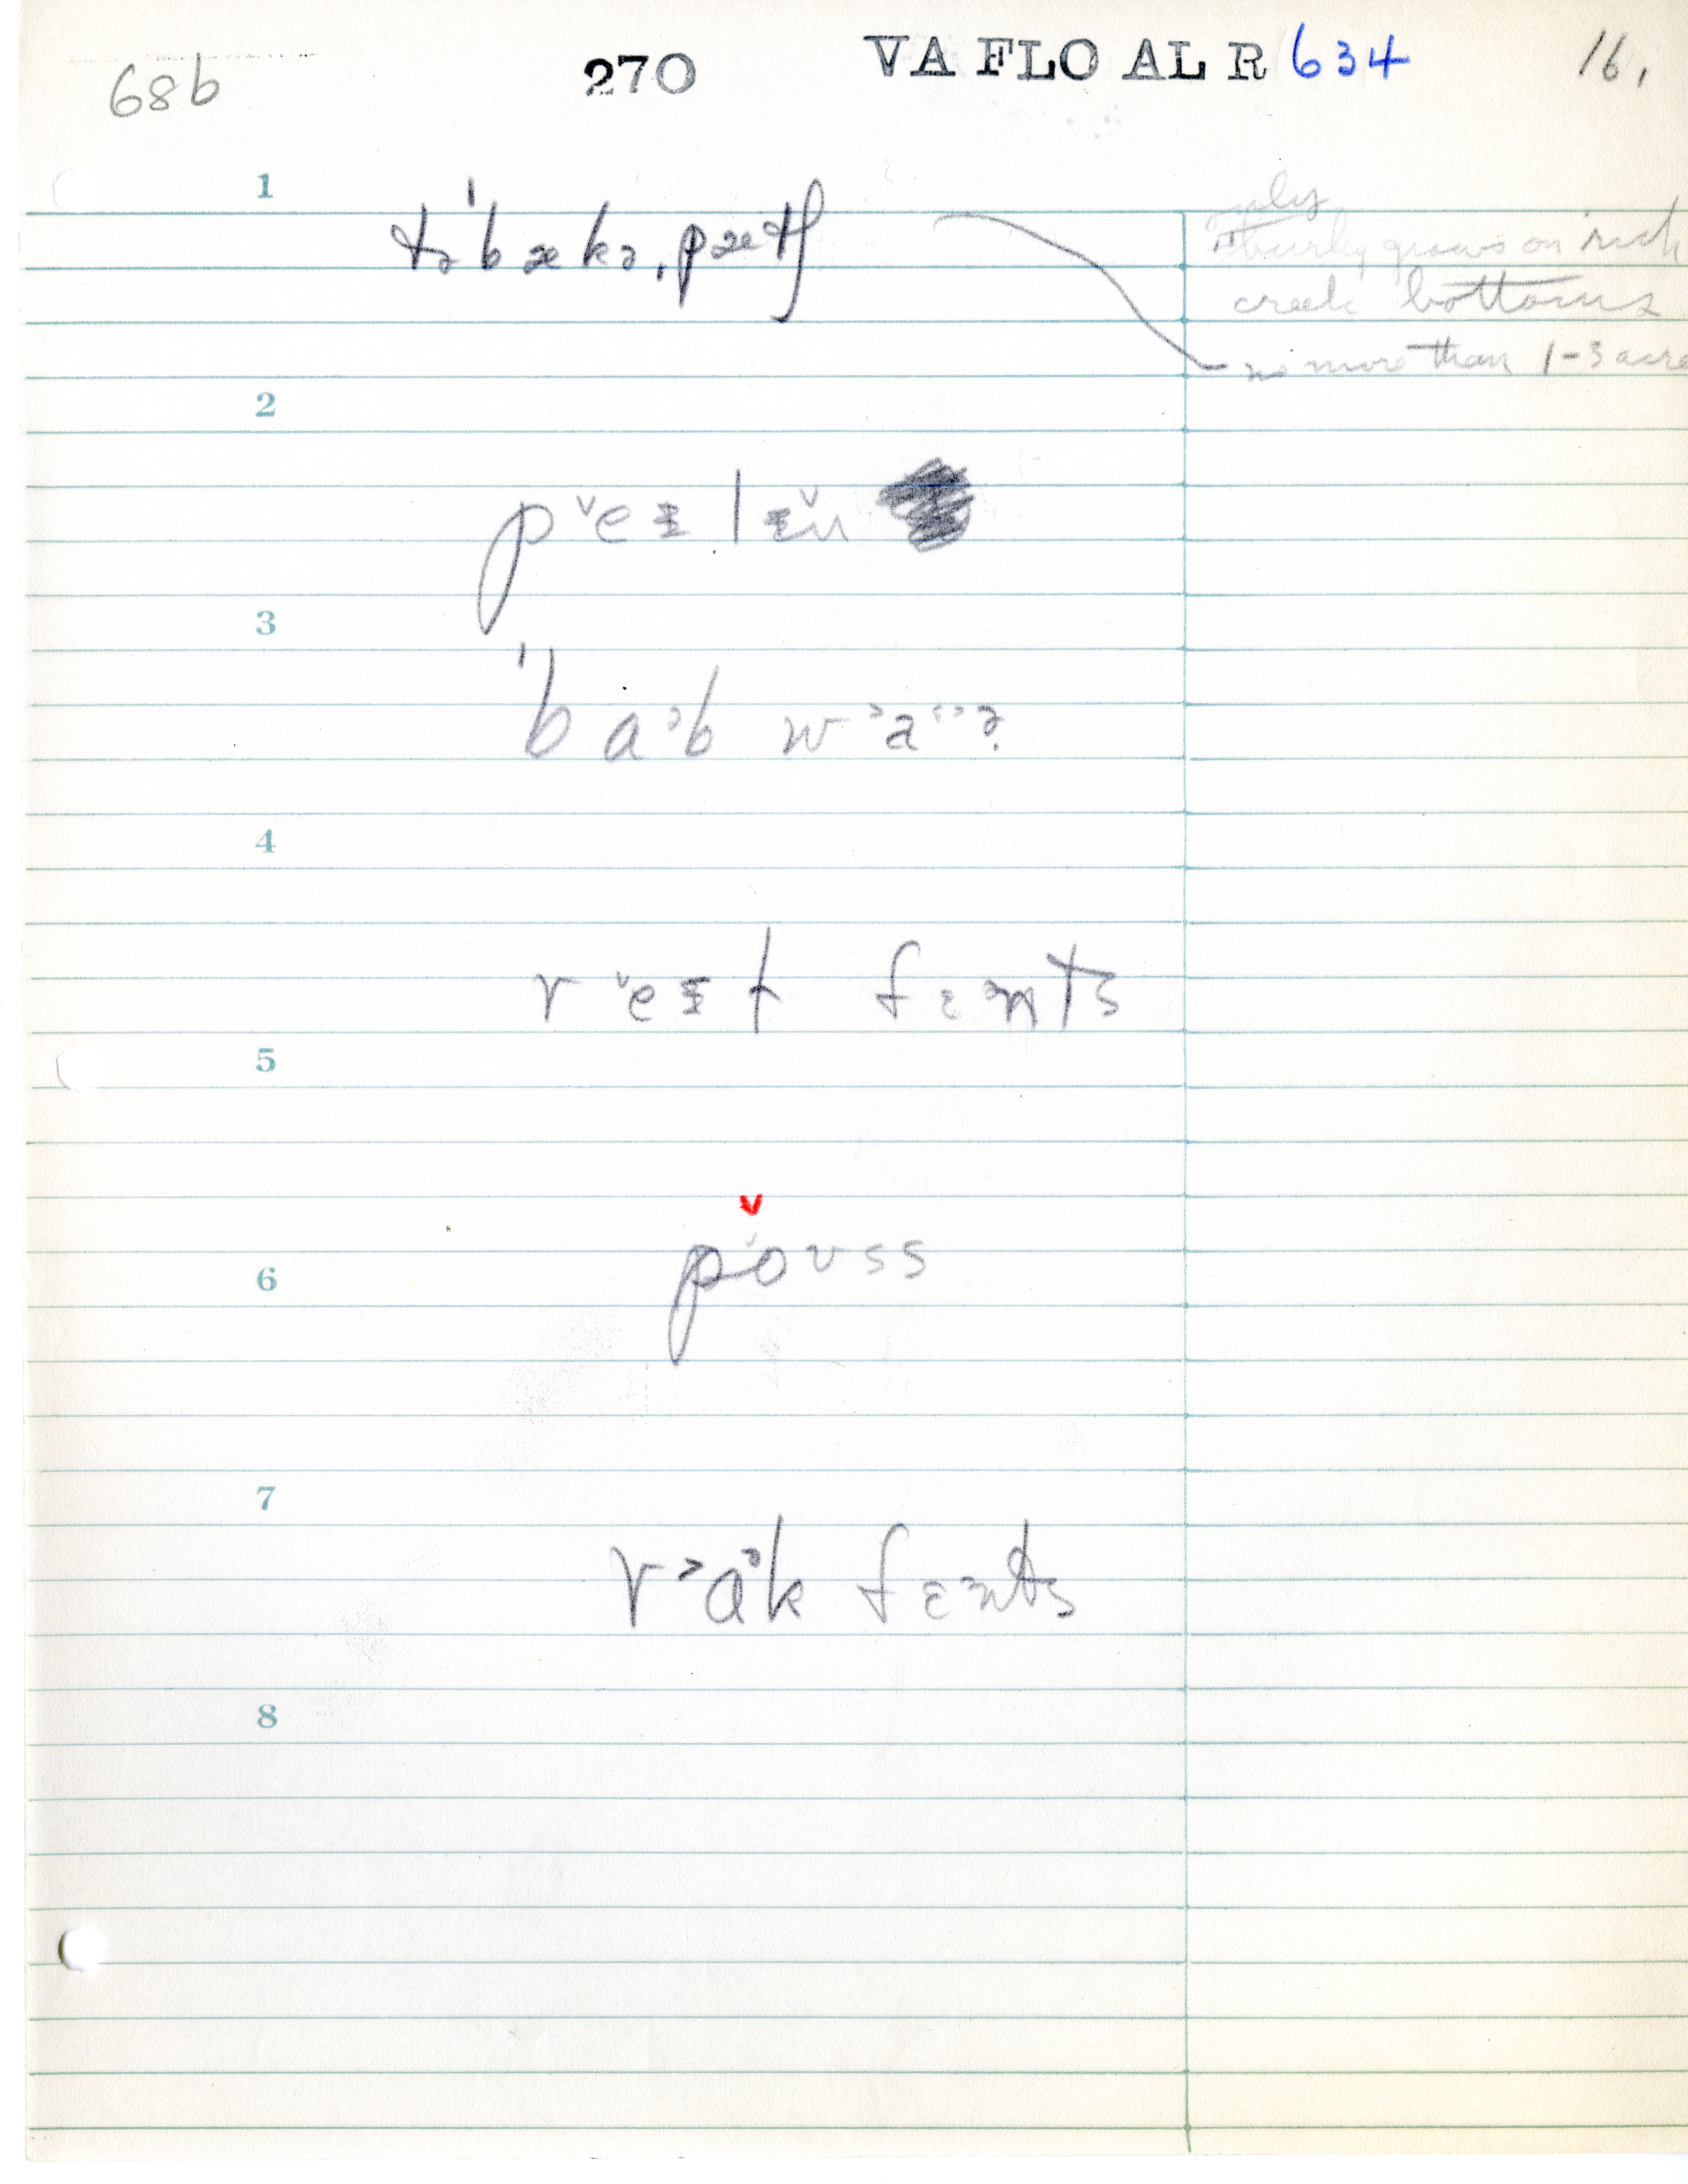 68b 270 VA FLO AL R 634 16.
1
tə'bækə,pætʃ
only
"burly grows on rich
creek bottoms
no more than 1-3 acre
2
p˅eɪlɪ˅n
3
'ba˃b w˃a˂˃ɚ
4
r˅eɪl fɛnts
5
p˅oʊss
6
7
r˃a˃k fɛnts
8